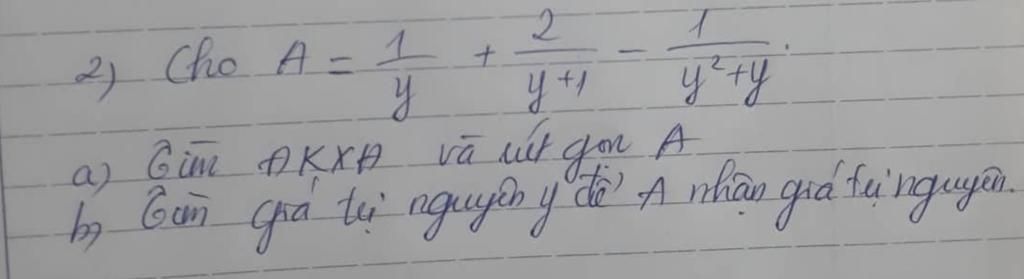 2) Cho A = 1/y + 2/(y+1) - 1/(y²+y).
a) Tìm ĐKXĐ và rút gọn A
b) Tìm giá trị nguyên y để A nhận giá trị nguyên.